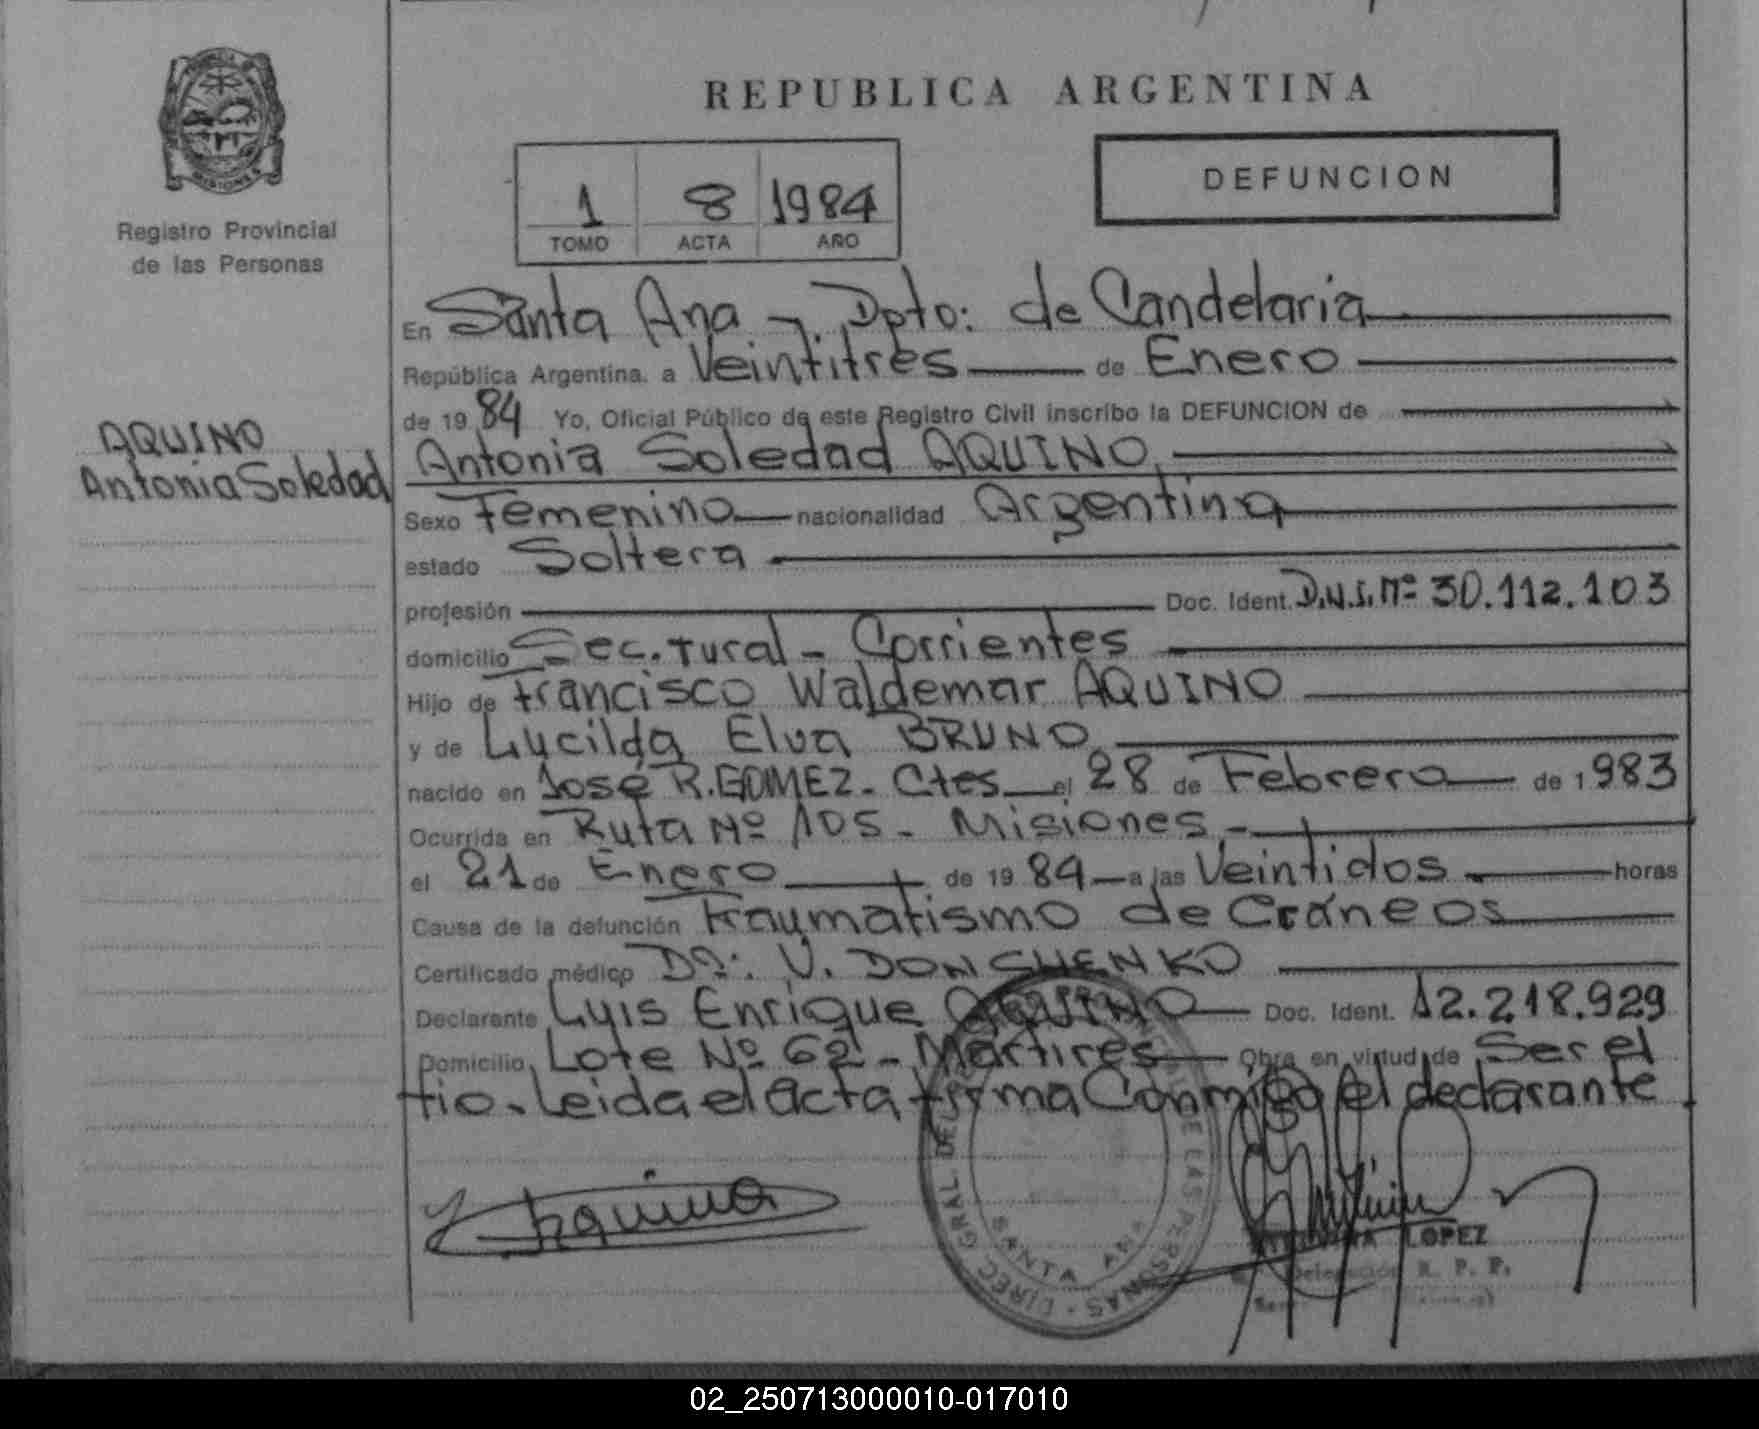 REPUBLICA ARGENTINA
DEFUNCION
1 8 1984
TOMO ACTA AÑO
MISIONES
Registro Provincial
de las Personas
AQUINO
Antonia Soledad
En Santa Ana - Dpto: de Candelaria
República Argentina. a Veintitres de Enero
de 19 84 Yo, Oficial Público de este Registro Civil inscribo la DEFUNCION de
Antonia Soledad AQUINO
Sexo Femenino nacionalidad Argentina
estado Soltera
profesión Doc. Ident. D.N.I. Nº 30.112.103
domicilio Sec. rural - Corrientes
Hijo de Francisco Waldemar AQUINO
y de Lucilda Elva BRUNO
nacido en José R. GOMEZ - Ctes el 28 de Febrero de 1983
Ocurrida en Ruta Nº 105 - Misiones -
el 21 de Enero de 19 84 a las Veintidos horas
Causa de la defunción traumatismo de Cráneos
Certificado médico DR: V. DONCHENKO
Declarante Luis Enrique AQUINO Doc. Ident. 12.218.929
Domicilio Lote Nº 62 - Martires Obra en virtud de Ser el
tio - Leida el acta firma Conmigo el declarante
Aquino
DIREC. GRAL. DE LAS PERSONAS
SANTA ANA
LOPEZ
Delegación R. P. P.
02_250713000010-017010